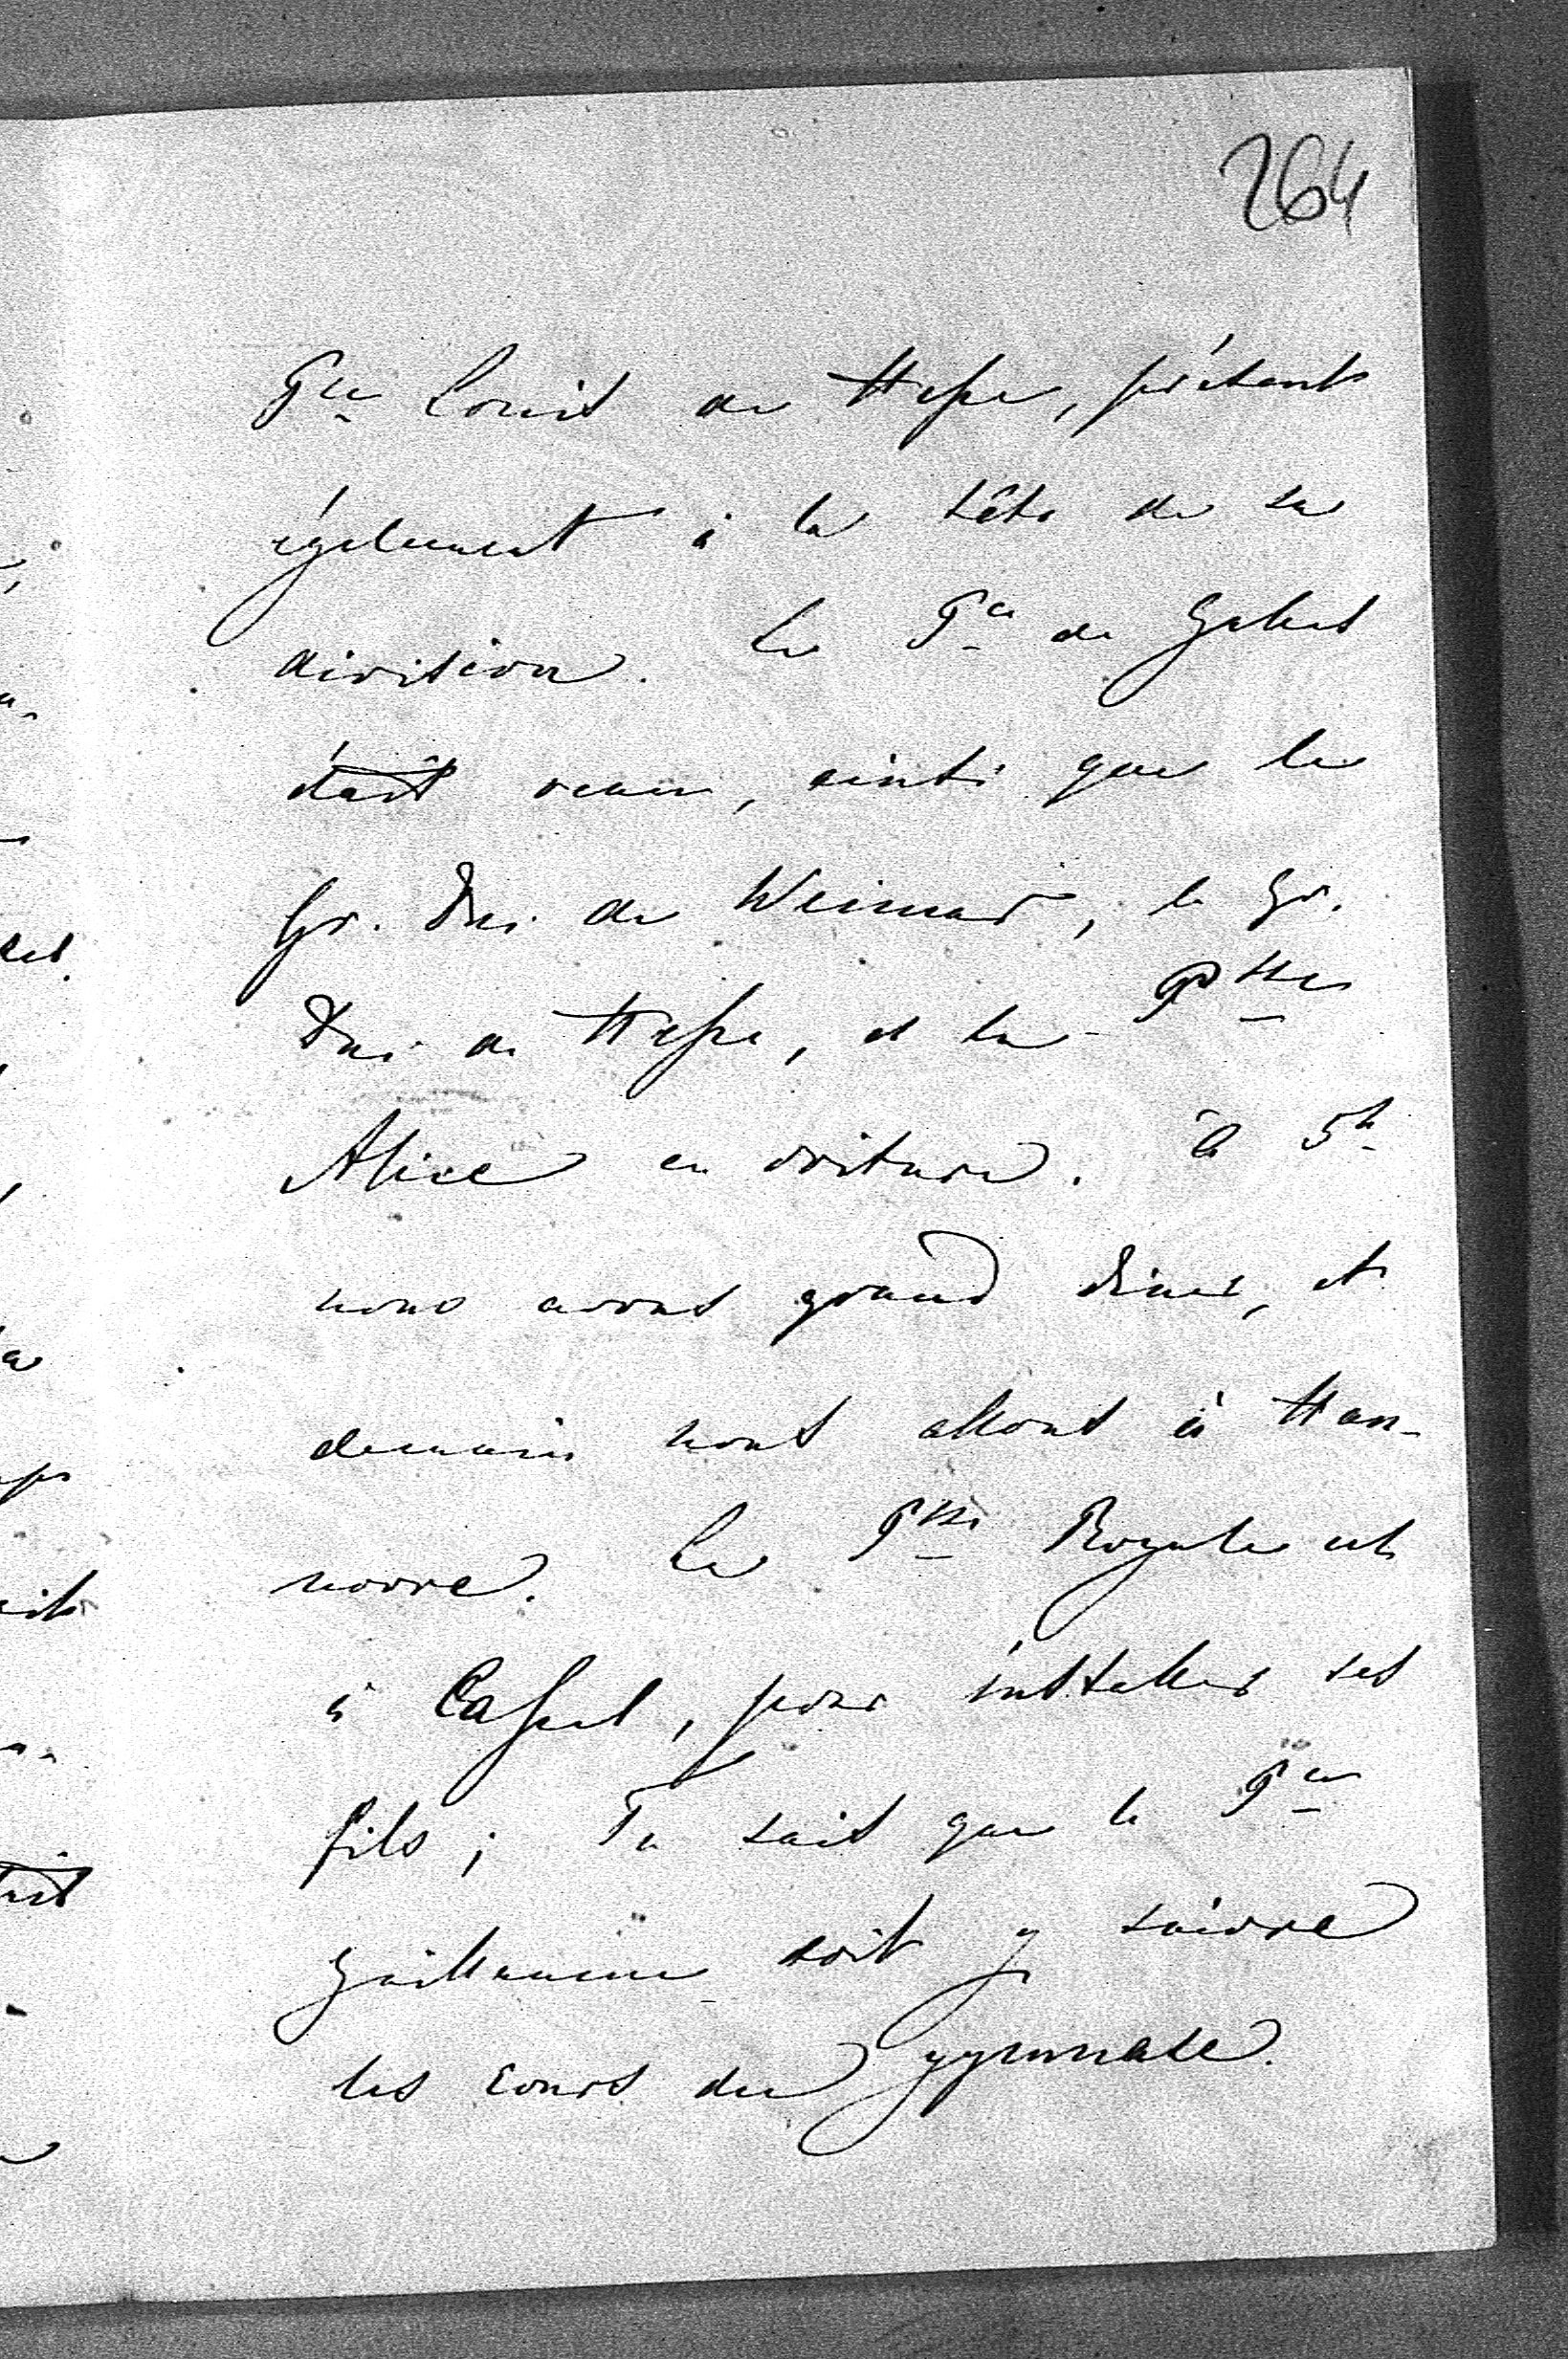 264
Pce Louis de Hesse, présent
également à la tête de sa
division. Le Pce de Galles
était venu, ainsi que le
Gr. Duc de Weimar, le Gr.
Duc de Hesse, et la Psse
Alice en voiture. à 5h
nous avons grand diner, et
demain nous allons à Han-
novre. La Psse Royale est
à Cassel, pour installer ses
fils; Tu sais que le Pce
Guillaume doit y suivre
les cours du gymnase.